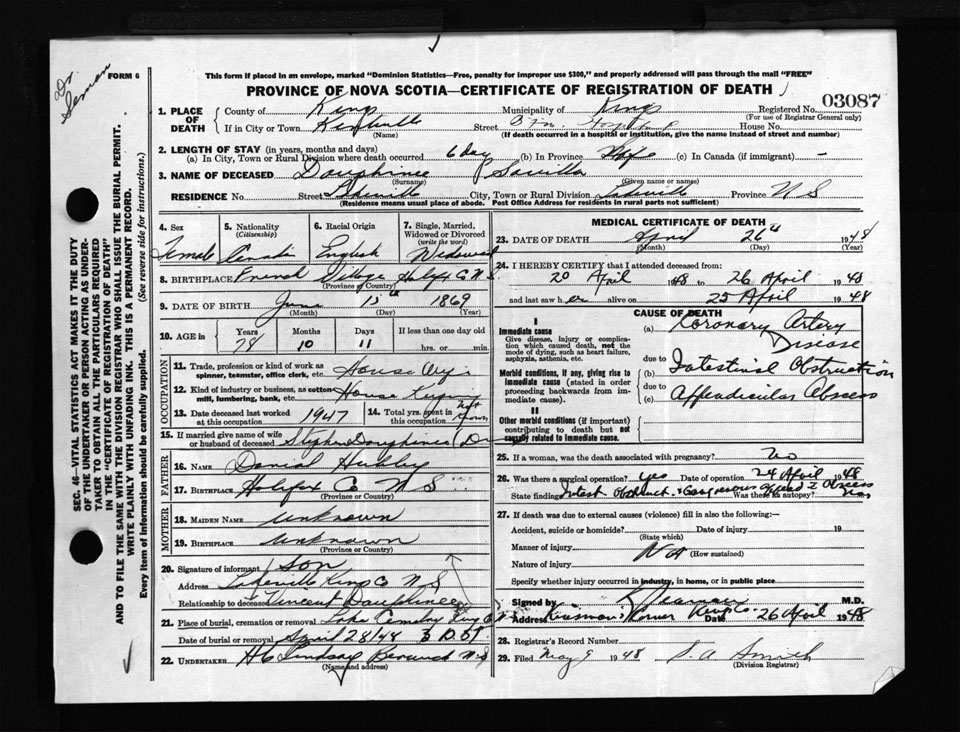 Dr Seman
FORM 6
This form if placed in an envelope, marked "Dominion Statistics—Free, penalty for improper use $300," and properly addressed will pass through the mail "FREE"
PROVINCE OF NOVA SCOTIA—CERTIFICATE OF REGISTRATION OF DEATH
SEC. 46—VITAL STATISTICS ACT MAKES IT THE DUTY
OF THE UNDERTAKER OR PERSON ACTING AS UNDER-
TAKER TO OBTAIN ALL THE PARTICULARS REQUIRED
IN THE "CERTIFICATE OF REGISTRATION OF DEATH"
AND TO FILE THE SAME WITH THE DIVISION REGISTRAR WHO SHALL ISSUE THE BURIAL PERMIT.
WRITE PLAINLY WITH UNFADING INK. THIS IS A PERMANENT RECORD.
Every item of Information should be carefully supplied. (See reverse side for instructions.)
1. PLACE OF DEATH County of Kings Municipality of Kings Registered No. 03087
(For use of Registrar General only)
If in City or Town Kentville Street Hospital House No.
(Name) (If death occurred in a hospital or institution, give the name instead of street and number)
2. LENGTH OF STAY (in years, months and days)
(a) In City, Town or Rural Division where death occurred 6 day (b) In Province Life (c) In Canada (if immigrant) -
3. NAME OF DECEASED Dauphinee Savilla
(Surname) (Given name or names)
RESIDENCE No. Street Lakeville City, Town or Rural Division Lakeville Province N S
(Residence means usual place of abode. Post Office Address for residents in rural parts not sufficient)
4. Sex Female
5. Nationality (Citizenship) Canadi
6. Racial Origin English
7. Single, Married, Widowed or Divorced (write the word) Widowed
8. BIRTHPLACE French Village Halifx Co N.S.
(Province or Country)
9. DATE OF BIRTH June 15th 1869
(Month) (Day) (Year)
10. AGE in Years Months Days If less than one day old
78 10 11 hrs. or min.
OCCUPATION
11. Trade, profession or kind of work as spinner, teamster, office clerk, etc. House Wife
12. Kind of industry or business, as cotton mill, lumbering, bank, etc. House Keeping
13. Date deceased last worked at this occupation 1947
14. Total yrs. spent in this occupation
15. If married give name of wife or husband of deceased Stephen Dauphinee
FATHER
16. NAME Danial Hubley
17. BIRTHPLACE Halifax Co N S
(Province or Country)
MOTHER
18. MAIDEN NAME unknown
19. BIRTHPLACE unknown
(Province or Country)
20. Signature of informant Son
Address Lakeville King Co N S
Relationship to deceased Vincent Dauphinee
21. Place of burial, cremation or removal Lake Cemetry King Co N S
Date of burial or removal April 28/48
22. UNDERTAKER H C Lindsay Berwick N.S
(Name and address)
MEDICAL CERTIFICATE OF DEATH
23. DATE OF DEATH April 26th 1948
(Month) (Day) (Year)
24. I HEREBY CERTIFY that I attended deceased from:
20 April 1948 to 26 April 1948
and last saw her alive on 25 April 1948
CAUSE OF DEATH
I
Immediate cause
Give disease, injury or complication which caused death, not the mode of dying, such as heart failure, asphyxia, asthenia, etc.
(a) Coronary Artery Disease
Morbid conditions, if any, giving rise to immediate cause (stated in order proceeding backwards from immediate).
due to (b) Intestinal Obstruction
due to (c) Appendicular Abscess
II
Other morbid conditions (if important) contributing to death but not causally related to immediate cause.
25. If a woman, was the death associated with pregnancy? No
26. Was there a surgical operation? yes Date of operation 24 April 1948
State finding Intest. Obstruct. + Gangrenous Append c Abscess Was there an autopsy?
27. If death was due to external causes (violence) fill in also the following:—
Accident, suicide or homicide? Date of injury 19
(State which)
Manner of injury Not
(How sustained)
Nature of injury
Specify whether injury occurred in industry, in home, or in public place
Signed by M.D.
Address Corner Kings Co. Date 26 April 1948
28. Registrar's Record Number
29. Filed May 9 1948 S. A Smith
(Division Registrar)